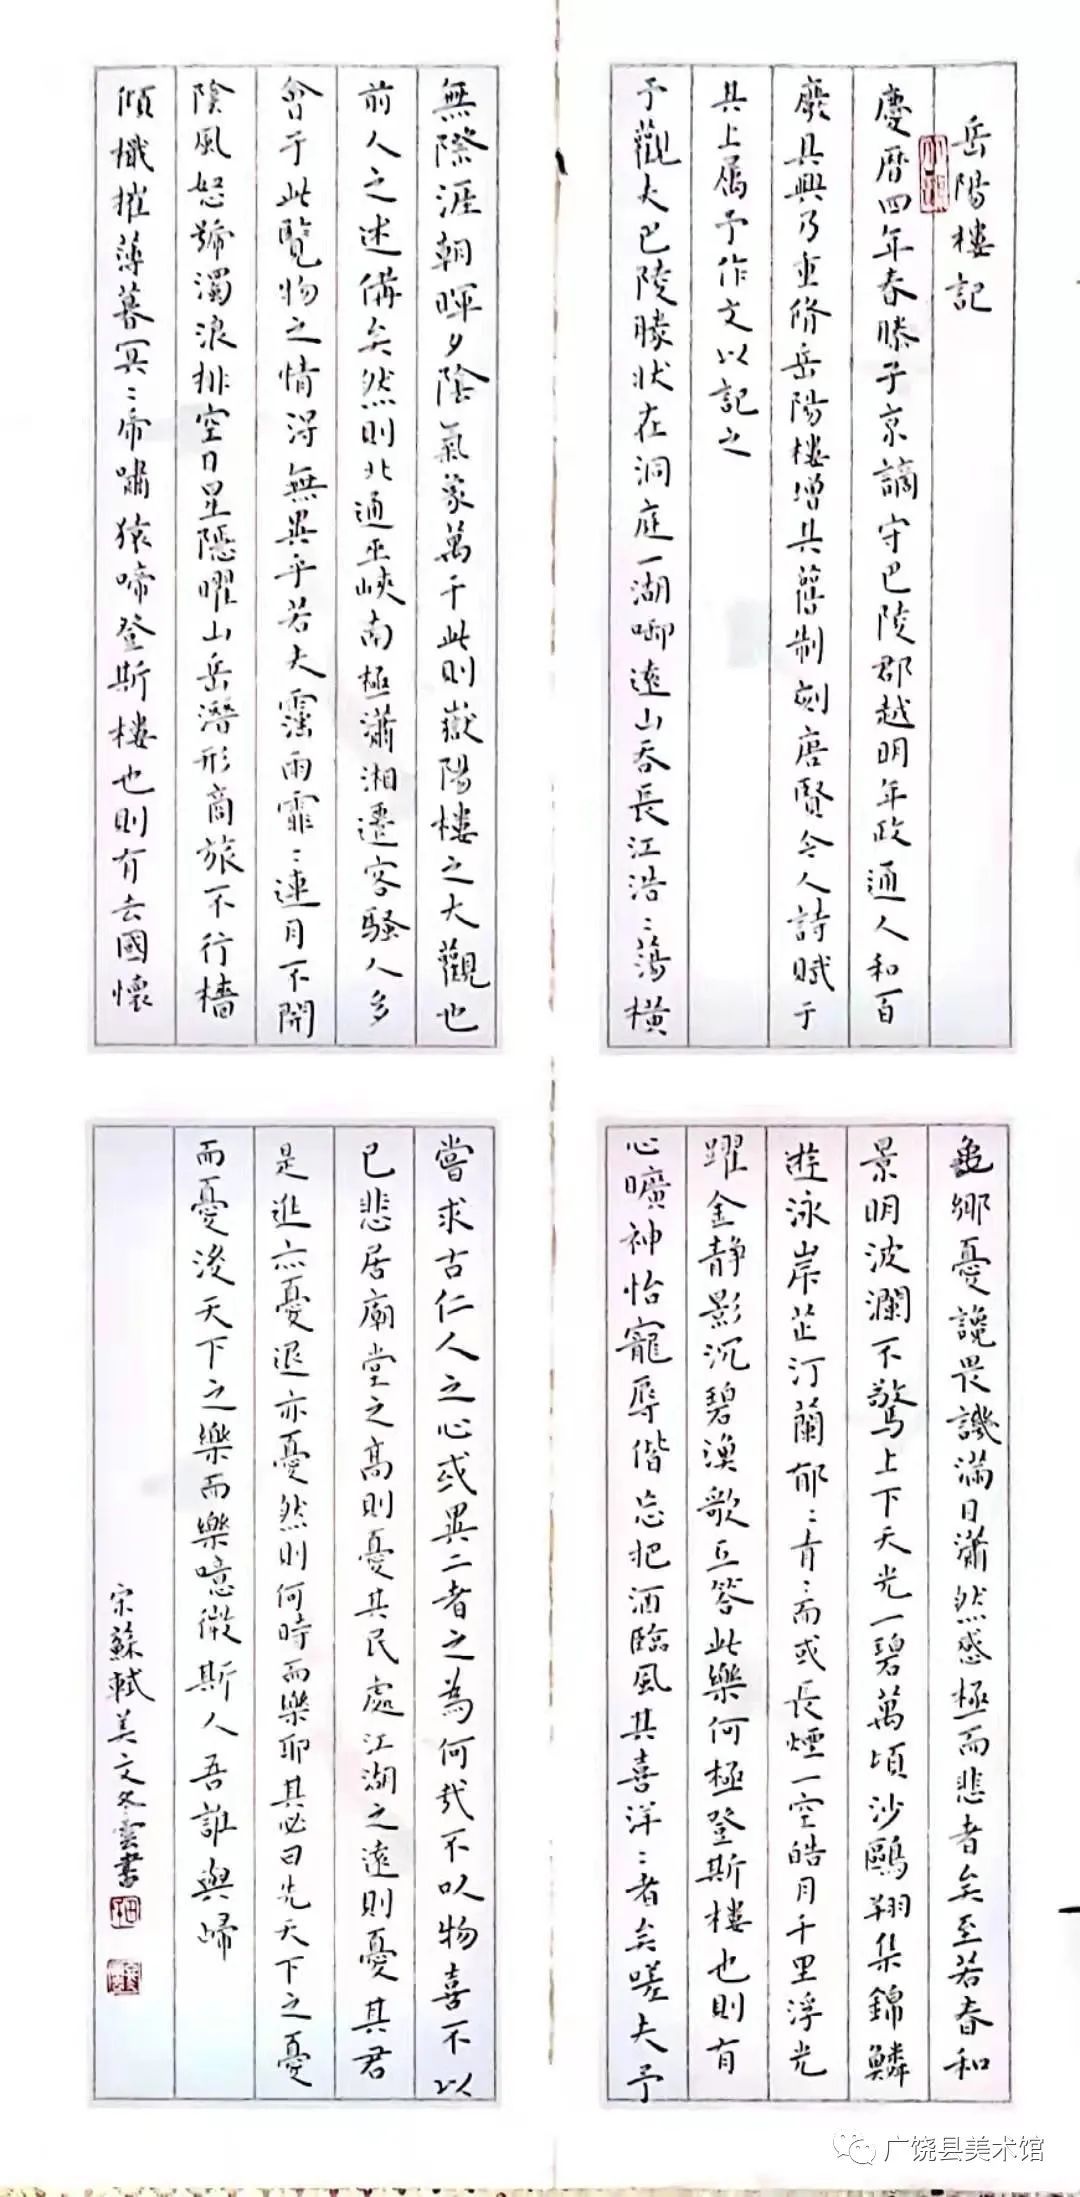 岳陽樓記
慶曆四年春滕子京謫守巴陵郡越明年政通人和百
廢具興乃重修岳陽樓增其舊制刻唐賢今人詩賦于
其上属予作文以記之
予觀夫巴陵勝状在洞庭一湖啣遠山吞長江浩〻蕩橫
無際涯朝暉夕陰氣象萬千此則嶽陽樓之大觀也
前人之述備矣然則北通巫峽南極瀟湘遷客騷人多
會于此覽物之情得無異乎若夫霪雨霏〻連月不開
陰風怒號濁浪排空日星隱曜山岳潛形商旅不行檣
傾檝摧薄暮冥〻帍嘯猿啼登斯樓也則有去國懷
鄉憂讒畏譏滿目瀟然感極而悲者矣至若春和
景明波瀾不驚上下天光一碧萬頃沙鷗翔集錦鱗
遊泳岸芷汀蘭郁〻青〻而或長煙一空皓月千里浮光
躍金静影沉碧漁歌互答此樂何極登斯樓也則有
心曠神怡寵辱偕忘把酒臨風其喜洋〻者矣嗟夫予
嘗求古仁人之心或異二者之為何哉不以物喜不以
己悲居廟堂之高則憂其民處江湖之遠則憂其君
是進亦憂退亦憂然則何時而樂耶其必曰先天下之憂
而憂後天下之樂而樂噫微斯人吾誰與歸
宋蘇軾美文冬雲書
广饶县美术馆